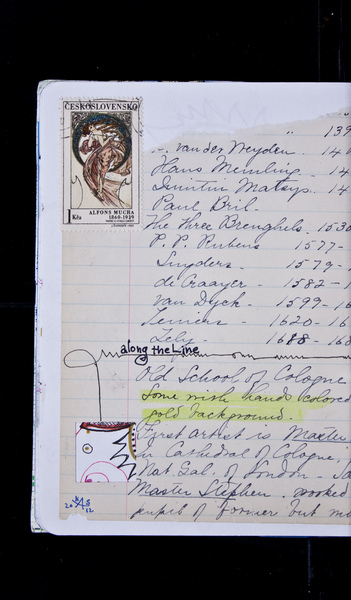 ČESKOSLOVENSKO
1 Kčs
ALFONS MUCHA
1860-1939
" 139
van der Weyden - 14
Hans Memling - 14
Quintin Matsys - 14
Paul Bril -
The Three Breughels. 1530
P. P. Rubens 1577 -
Snyders - 1579 -
de Craayer - 1582 - 1
Van Dyck - 1599 - 16
Teniers - 1620 - 16
Lely 1688 - 168
along the Line
Old School of Cologne
Some with hands colored
gold background.
First artist is Master
in Cathedral of Cologne;
Nat Gal. of London -
Master Stephen. worked
pupil of former but
20 12